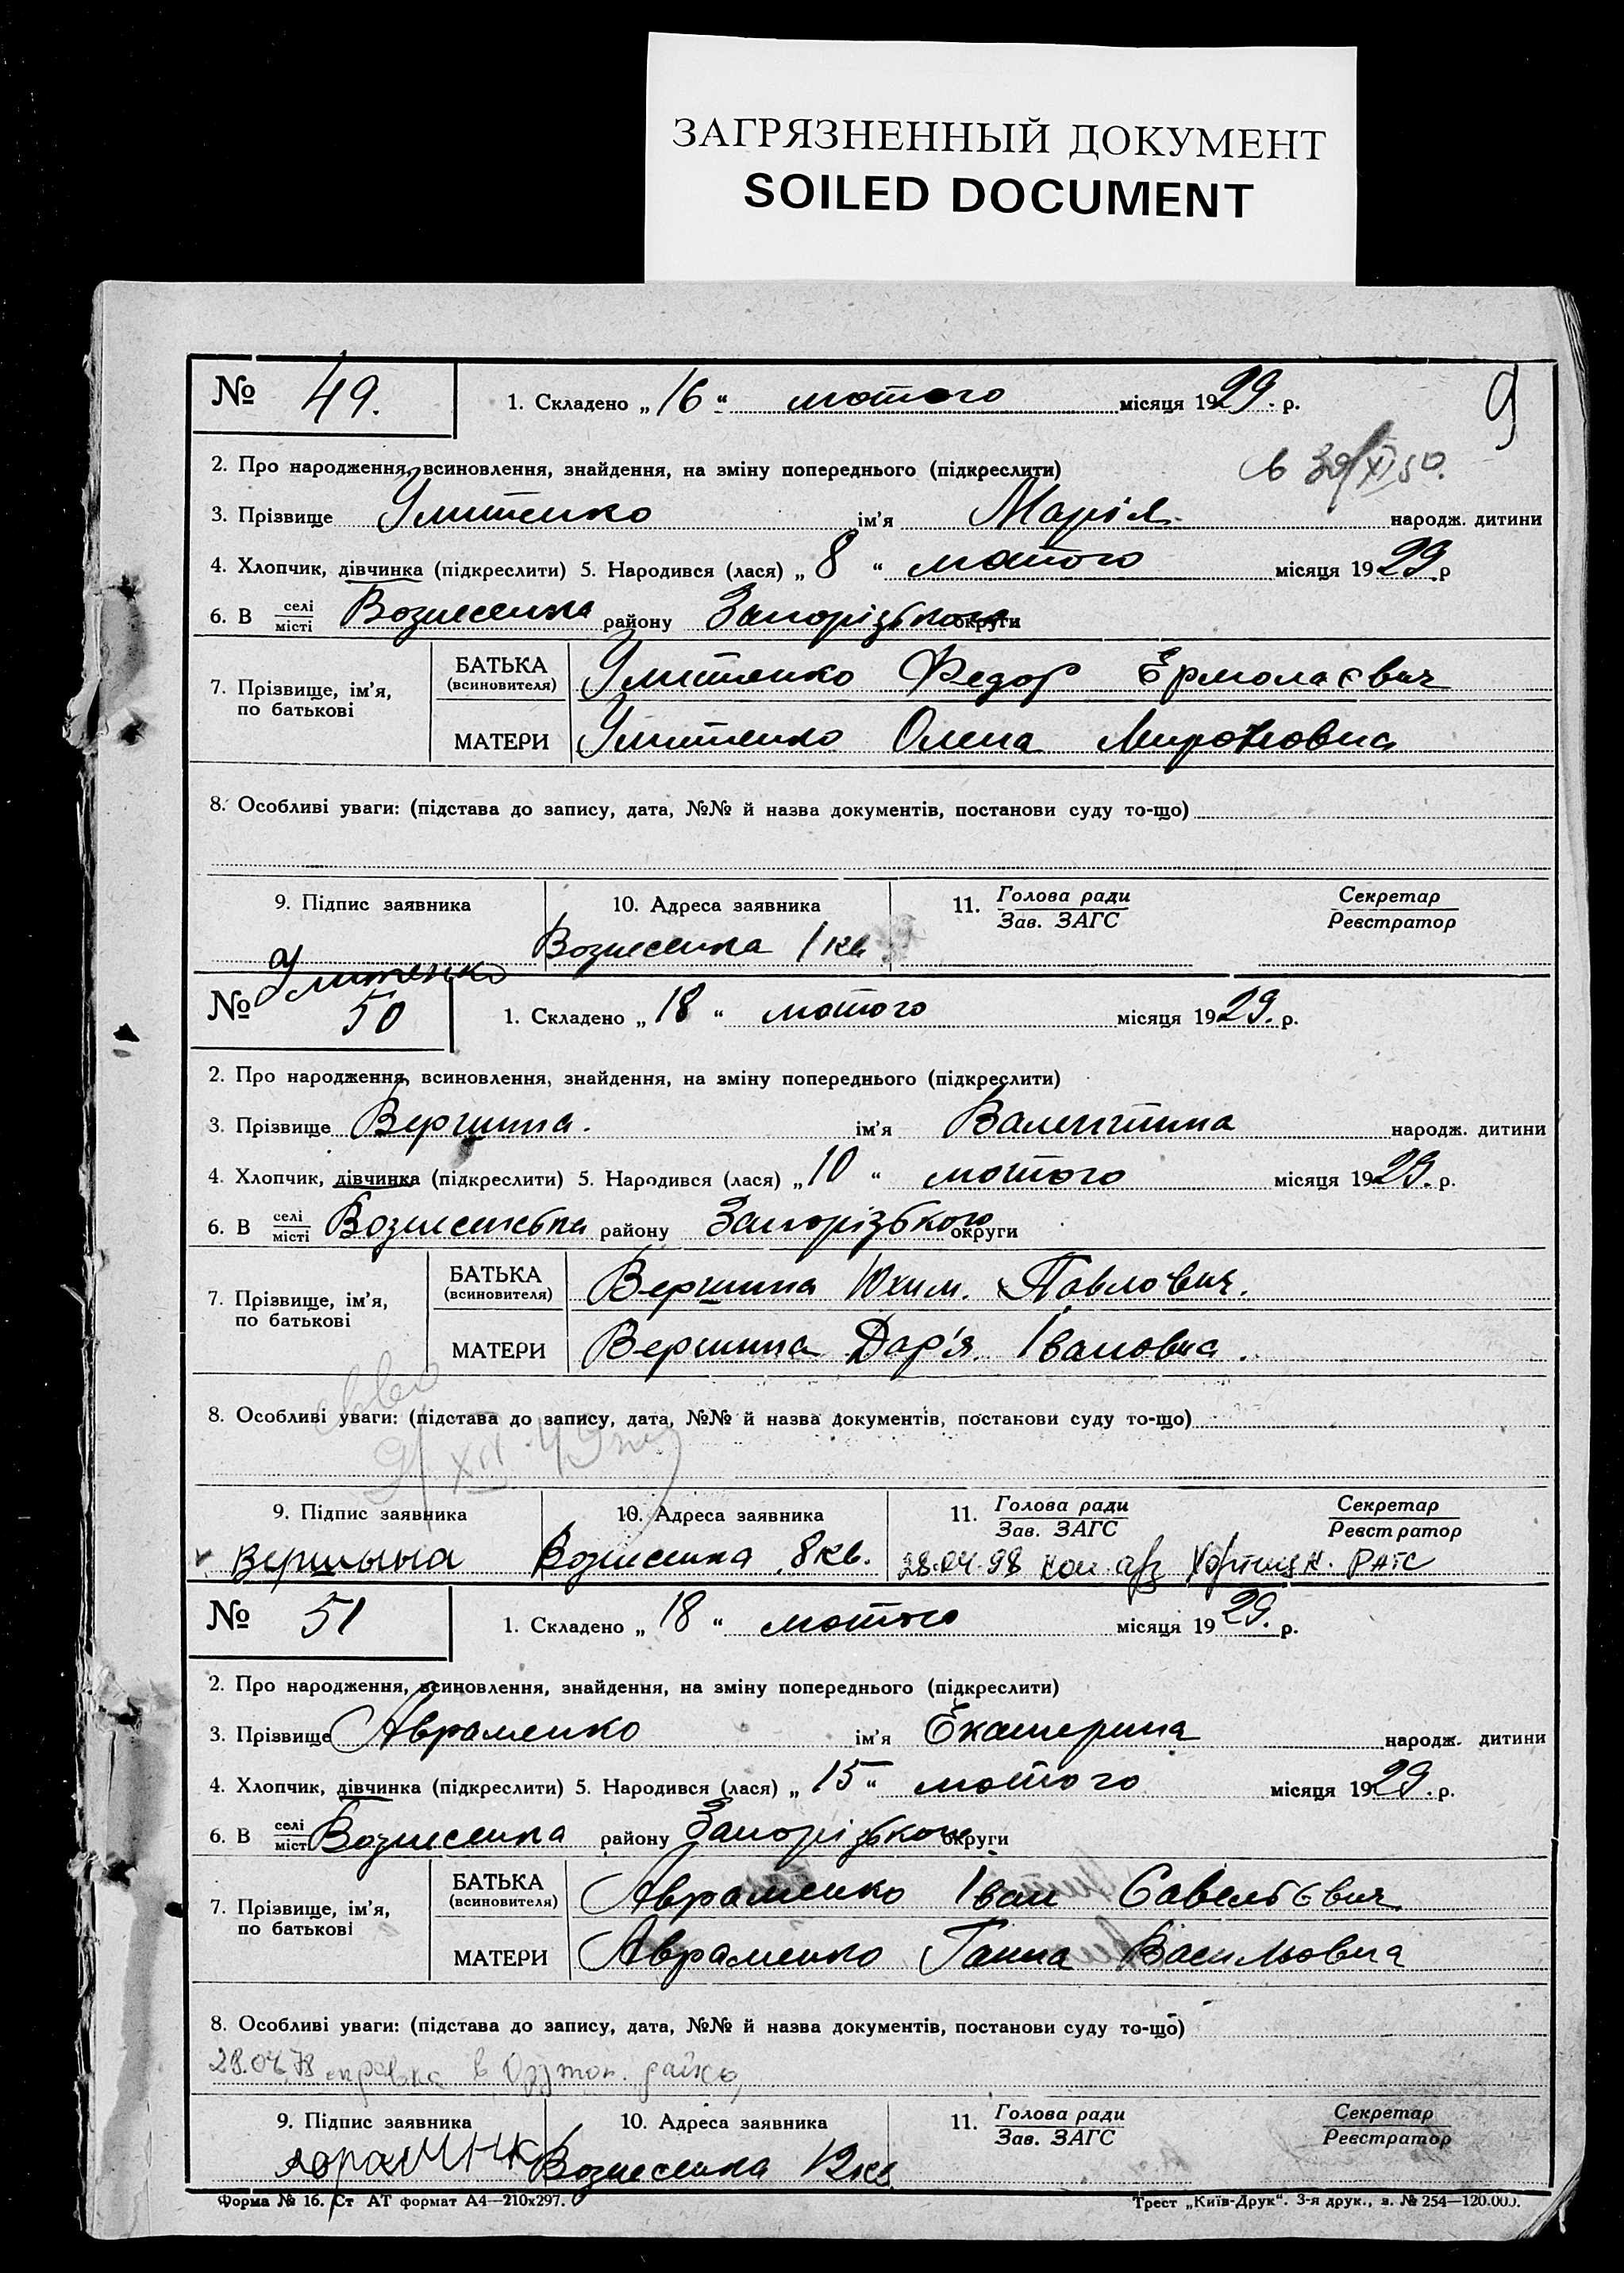 ЗАГРЯЗНЕННЫЙ ДОКУМЕНТ
SOILED DOCUMENT
9
№ 49. 1. Складено „16“ лютого місяця 1929. р.
2. Про народження, всиновлення, знайдення, на зміну попереднього (підкреслити)
3. Прізвище Улитенко ім'я Марія. народж. дитини
4. Хлопчик, дівчинка (підкреслити) 5. Народився (лася) „8“ лютого місяця 1929 р
6. В селі/місті Вознесенка району Запорізького округи
7. Прізвище, ім'я, по батькові
БАТЬКА (всиновителя) Улитенко Федор Ермолаєвич
МАТЕРИ Улитенко Олена Мироновна
8. Особливі уваги: (підстава до запису, дата, №№ й назва документів, постанови суду то-що)
9. Підпис заявника 10. Адреса заявника 11. Голова ради/Зав. ЗАГС Секретар/Реєстратор
Улитенко Вознесенка 1 кв
№ 50 1. Складено „18“ лютого місяця 1929. р.
2. Про народження, всиновлення, знайдення, на зміну попереднього (підкреслити)
3. Прізвище Вершина. ім'я Валентина народж. дитини
4. Хлопчик, дівчинка (підкреслити) 5. Народився (лася) „10“ лютого місяця 1929. р.
6. В селі/місті Вознесенська району Запорізького округи
7. Прізвище, ім'я, по батькові
БАТЬКА (всиновителя) Вершина Юхим. Павлович.
МАТЕРИ Вершина Дар'я. Івановна.
8. Особливі уваги: (підстава до запису, дата, №№ й назва документів, постанови суду то-що)
9. Підпис заявника 10. Адреса заявника 11. Голова ради/Зав. ЗАГС Секретар/Реєстратор
Вершына Вознесенка 8 кв. 28.04.98 РАГС
№ 51 1. Складено „18“ лютого місяця 1929. р.
2. Про народження, всиновлення, знайдення, на зміну попереднього (підкреслити)
3. Прізвище Авраменко ім'я Екатерина народж. дитини
4. Хлопчик, дівчинка (підкреслити) 5. Народився (лася) „15“ лютого місяця 1929. р.
6. В селі/місті Вознесенка району Запорізького округи
7. Прізвище, ім'я, по батькові
БАТЬКА (всиновителя) Авраменко Іван Савельєвич
МАТЕРИ Авраменко Ганна Васильовна
8. Особливі уваги: (підстава до запису, дата, №№ й назва документів, постанови суду то-що)
9. Підпис заявника 10. Адреса заявника 11. Голова ради/Зав. ЗАГС Секретар/Реєстратор
Вознесенка 12 кв
Форма № 16. Ст АТ формат А4—210х297. Трест „Київ-Друк“. 3-я друк., з. № 254—120.000.